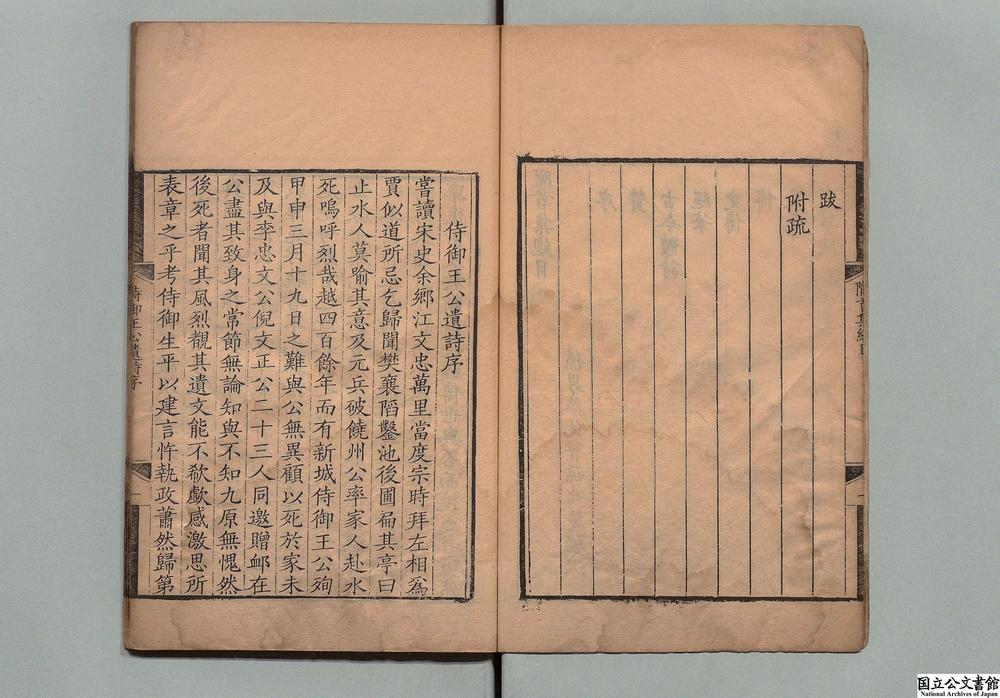 跋
附疏
侍御王公遺詩序
嘗讀宋史余鄉江文忠萬里當度宗時拜左相爲
賈似道所忌乞歸聞樊襄陷鑿池後圃扁其亭曰
止水人莫喻其意及元兵破饒州公率家人赴水
死嗚呼烈哉越四百餘年而有新城侍御王公殉
甲申三月十九日之難與公無異顧以死於家未
及與李忠文公倪文正公二十三人同邀贈衈在
公盡其致身之常節無論知與不知九原無愧然
後死者聞其風烈觀其遺文能不欷歔感激思所
表章之乎考侍御生平以建言忤執政蕭然歸第
侍御王公遺詩序
一
国立公文書館
National Archives of Japan